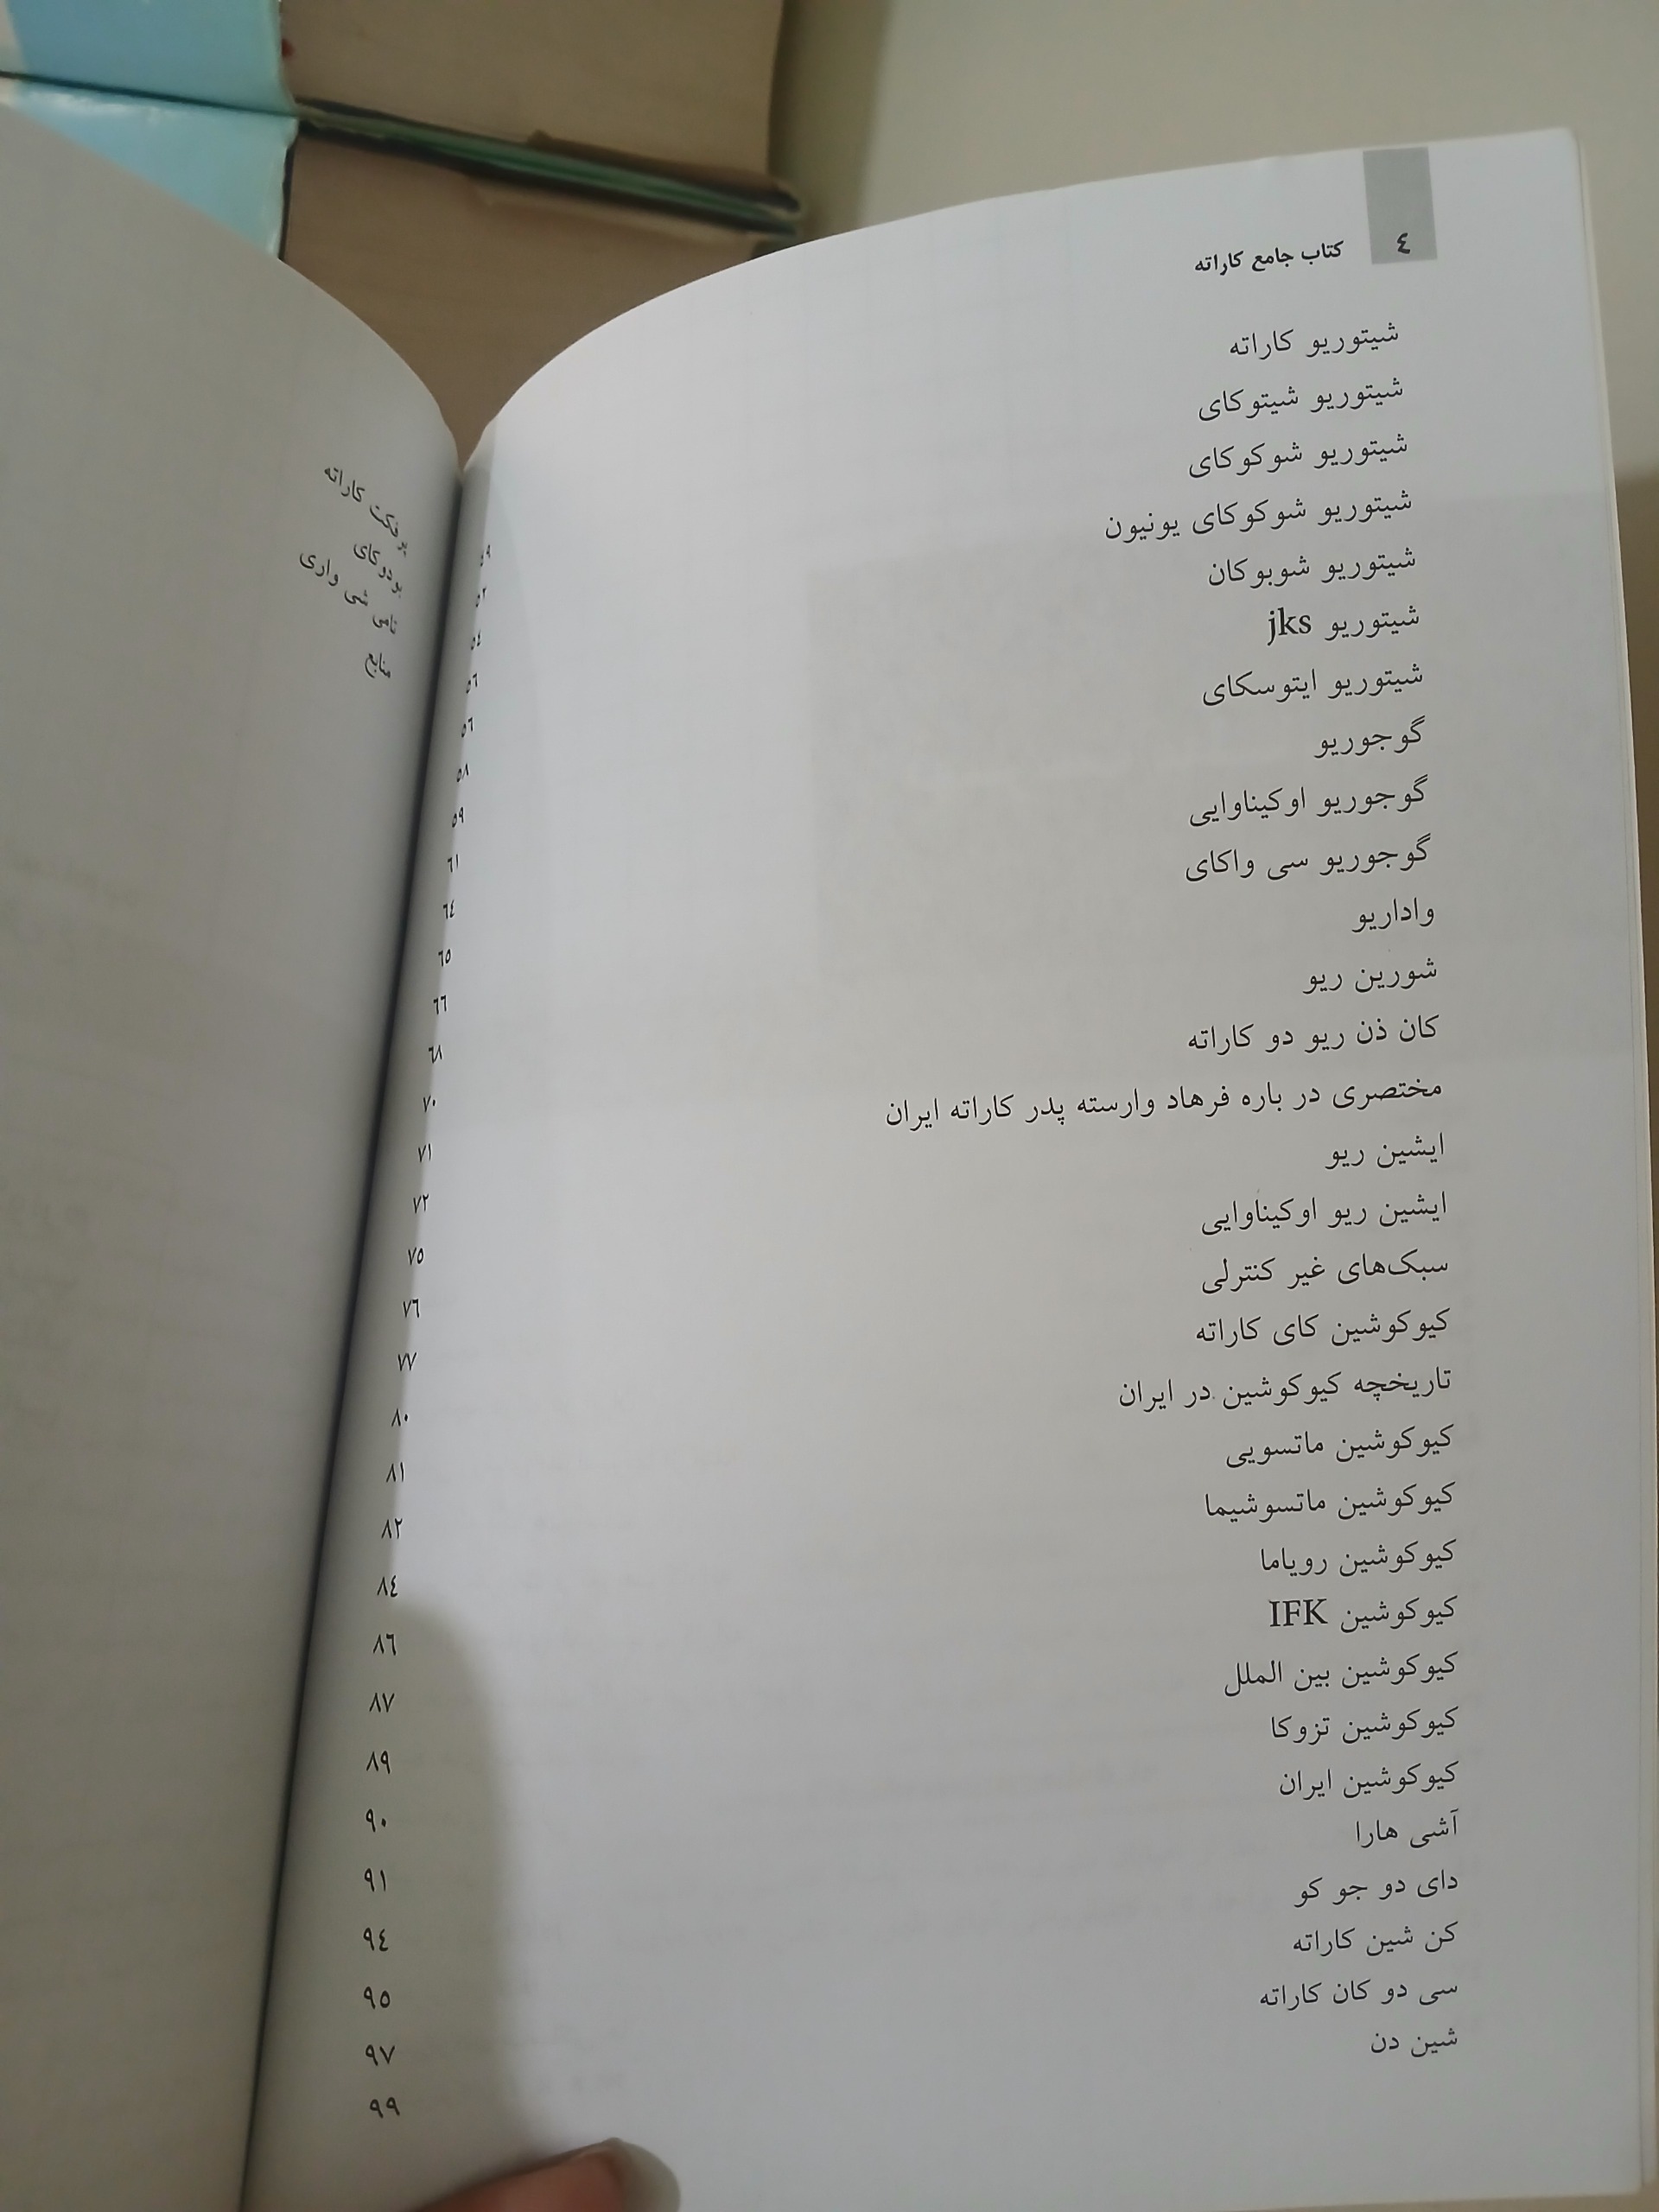 ٤ کتاب جامع کاراته
شیتوریو کاراته
شیتوریو شیتوکای ٥٢
شیتوریو شوکوکای ٥٤
شیتوریو شوکوکای یونیون ٥٦
شیتوریو شوبوکان ٥٦
شیتوریو jks ٥٨
شیتوریو ایتوسکای ٥٩
گوجوریو ٦١
گوجوریو اوکیناوایی ٦٤
گوجوریو سی واکای ٦٥
واداریو ٦٦
شورین ریو ٦٨
کان ذن ریو دو کاراته ٧٠
مختصری در باره فرهاد وارسته پدر کاراته ایران ٧١
ایشین ریو ٧٢
ایشین ریو اوکیناوایی ٧٥
سبک‌های غیر کنترلی ٧٦
کیوکوشین کای کاراته ٧٧
تاریخچه کیوکوشین در ایران ٨٠
کیوکوشین ماتسویی ٨١
کیوکوشین ماتسوشیما ٨٢
کیوکوشین رویاما ٨٤
کیوکوشین IFK ٨٦
کیوکوشین بین الملل ٨٧
کیوکوشین تزوکا ٨٩
کیوکوشین ایران ٩٠
آشی هارا ٩١
دای دو جو کو ٩٤
کن شین کاراته ٩٥
سی دو کان کاراته ٩٧
شین دن ٩٩
کاراته
بودوکای
شی واری
منابع